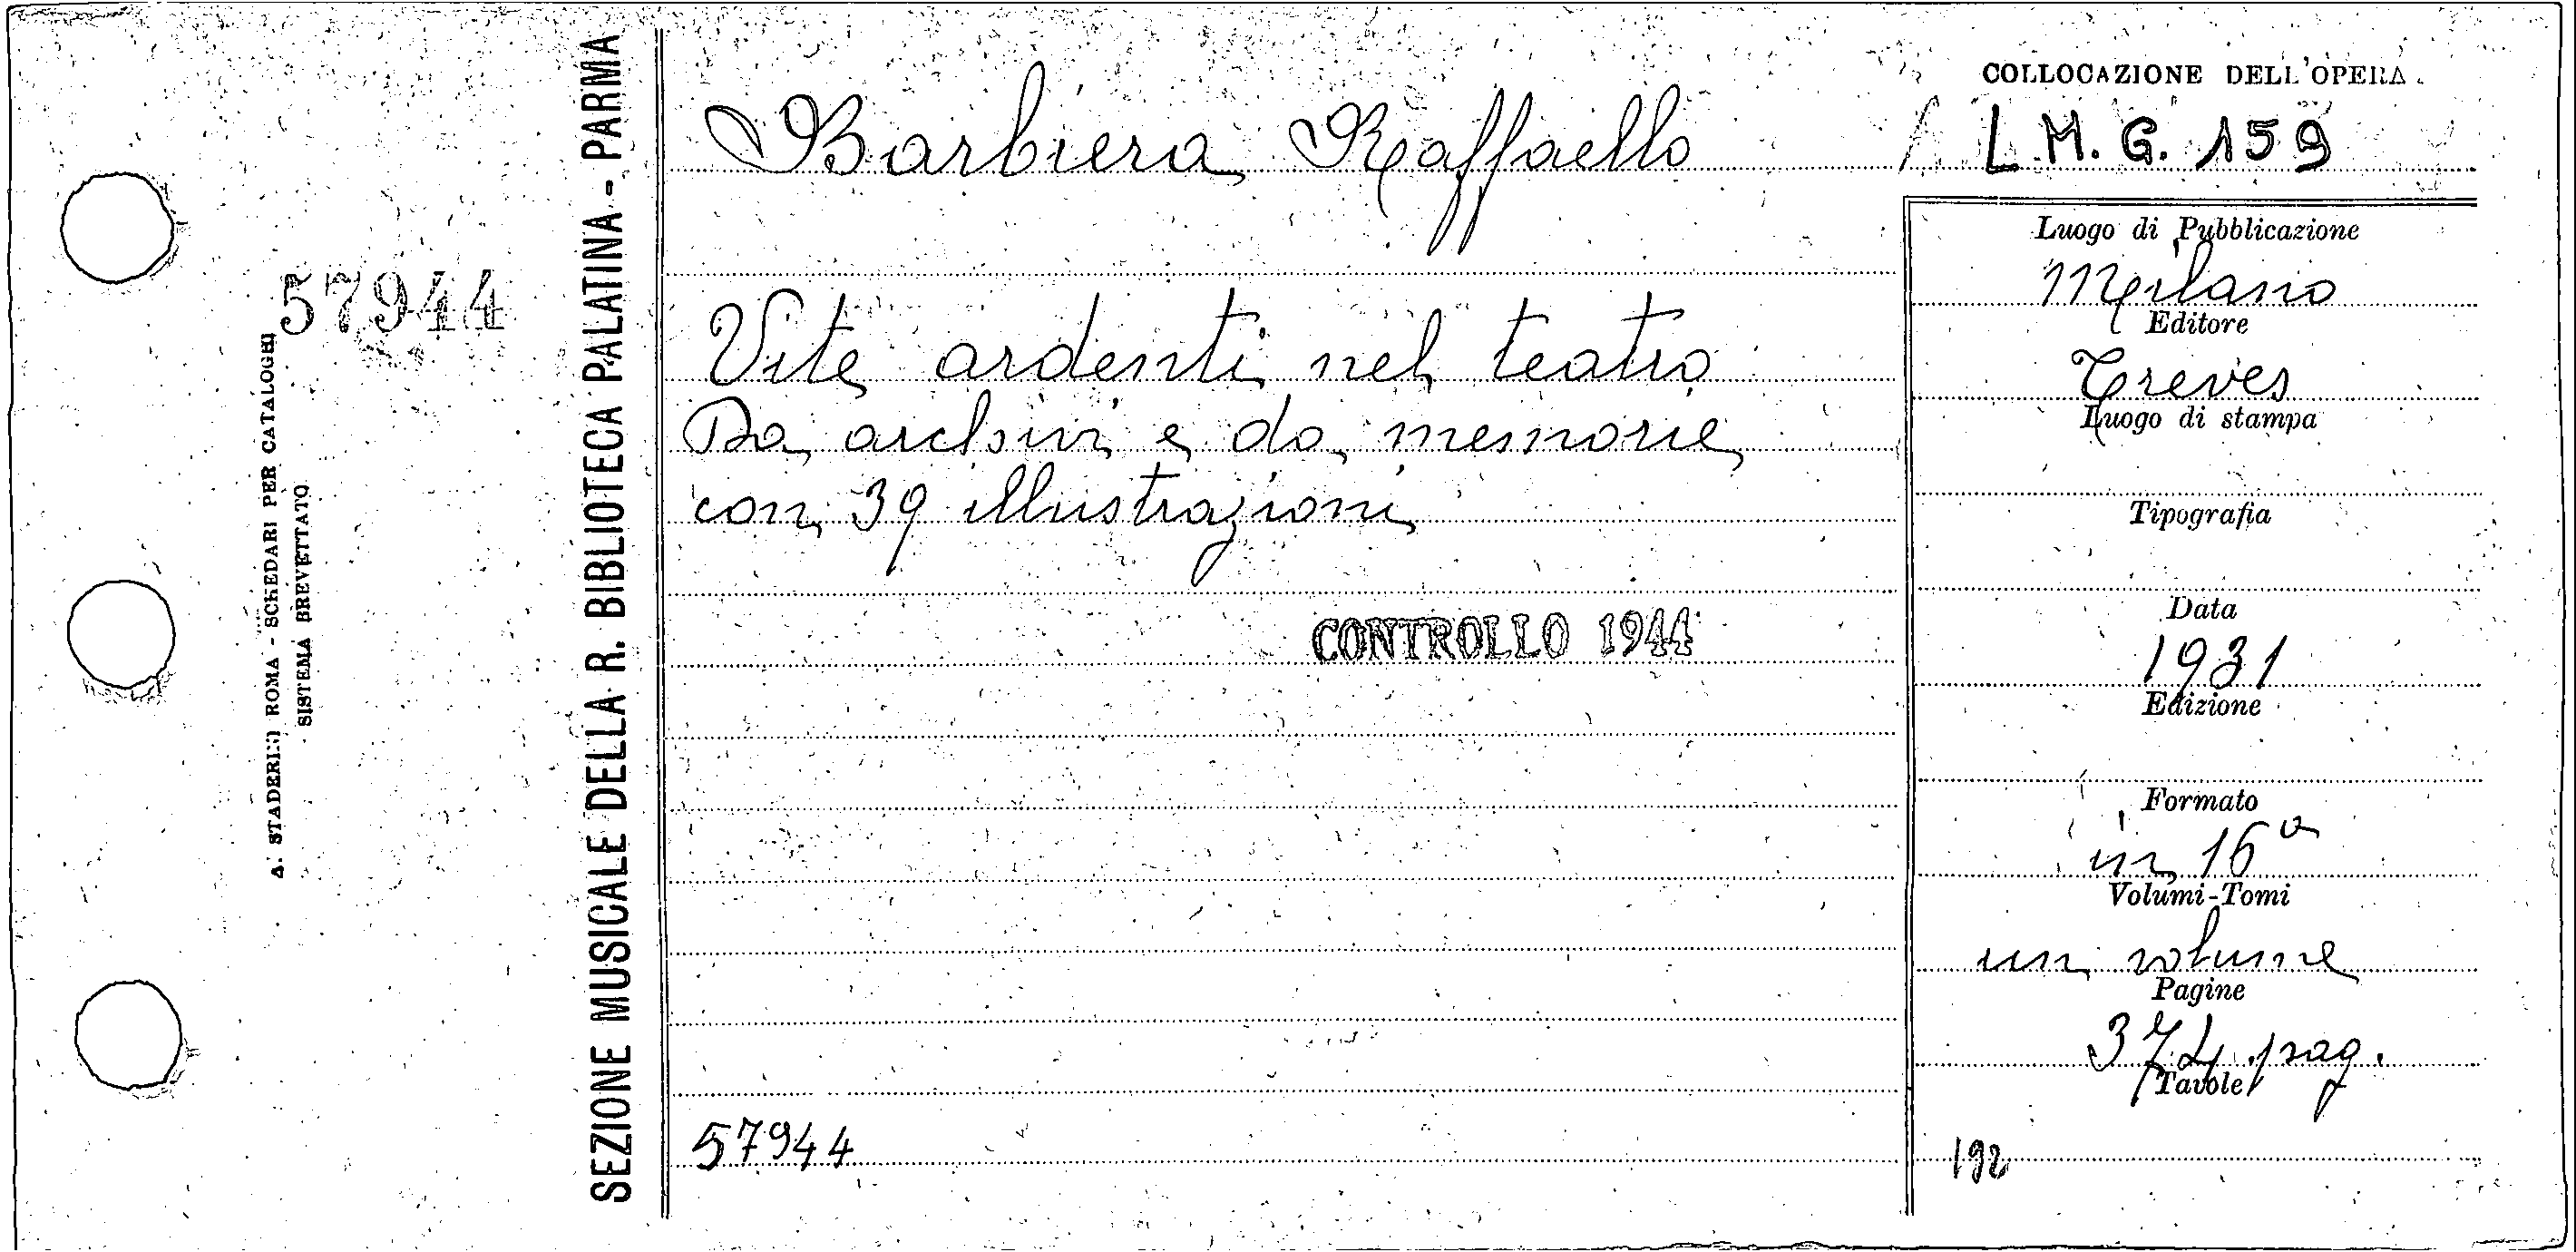 COLLOCAZIONE DELL'OPERA
Barbiera Raffaello
L. M. G. 159
Luogo di Pubblicazione
Milano
Editore
Treves
Luogo di stampa
Tipografia
Data
1931
Edizione
Formato
in 16º
Volumi-Tomi
un volume
Pagine
374 pag.
Tavole
192
Vite ardenti nel teatro
Da archivi e da memorie
con 39 illustrazioni
CONTROLLO 1944
57944
SEZIONE MUSICALE DELLA R. BIBLIOTECA PALATINA - PARMA
57944
A. STADERINI ROMA - SCHEDARI PER CATALOGHI
SISTEMA BREVETTATO